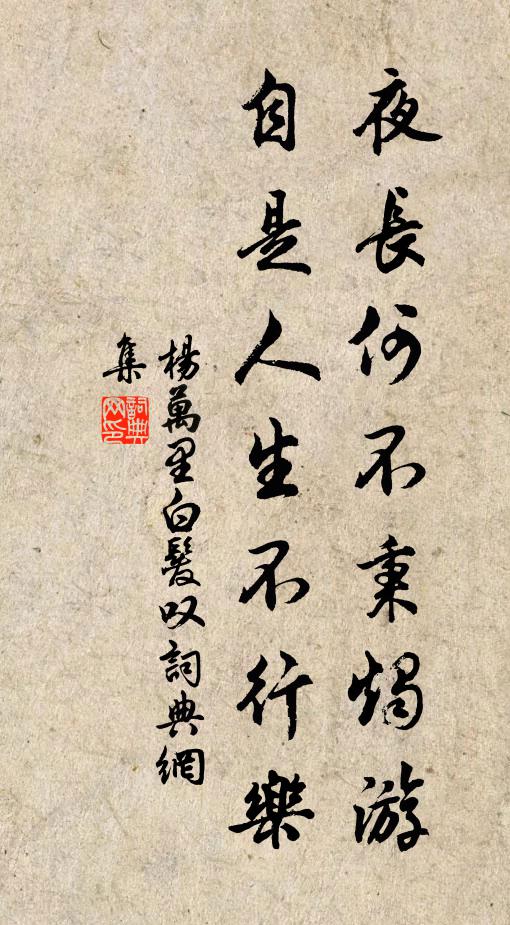 夜長何不秉燭游
自是人生不行樂
楊萬里白髮叹詞典網
集
詞典
网印